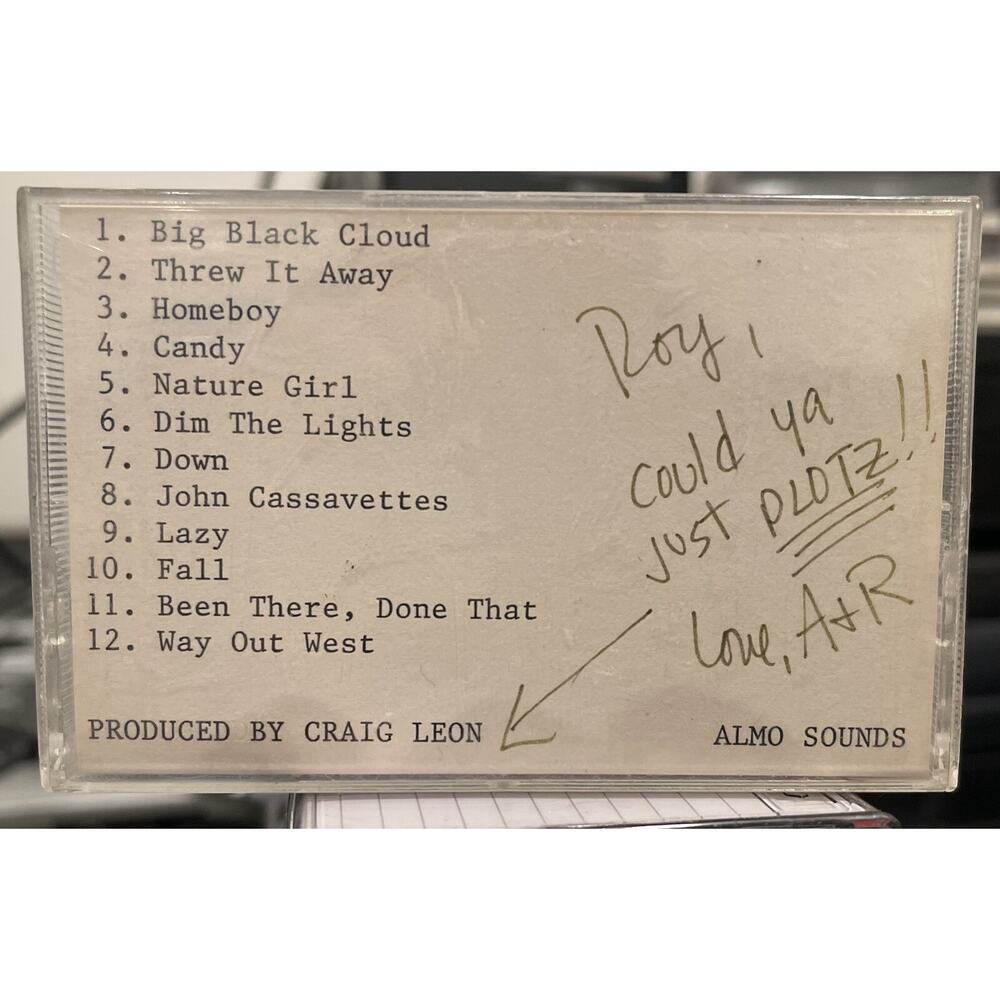 1. Big Black Cloud
2. Threw It Away
3. Homeboy
4. Candy
5. Nature Girl
6. Dim The Lights
7. Down
8. John Cassavettes
9. Lazy
10. Fall
11. Been There, Done That
12. Way Out West
Roy,
could ya
just PLOTZ!!
Love, A+R
PRODUCED BY CRAIG LEON
ALMO SOUNDS